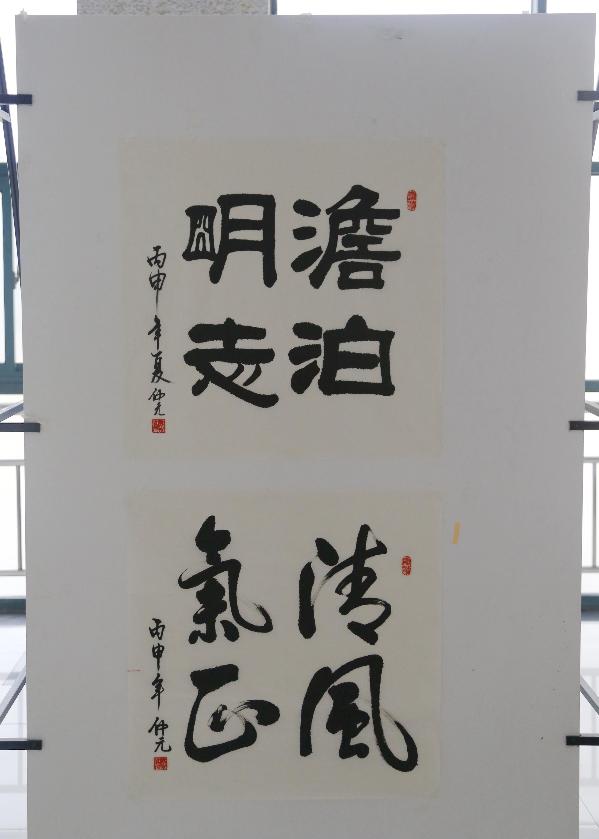 澹泊
明志
丙申年夏仲元
清風
氣正
丙申年仲元